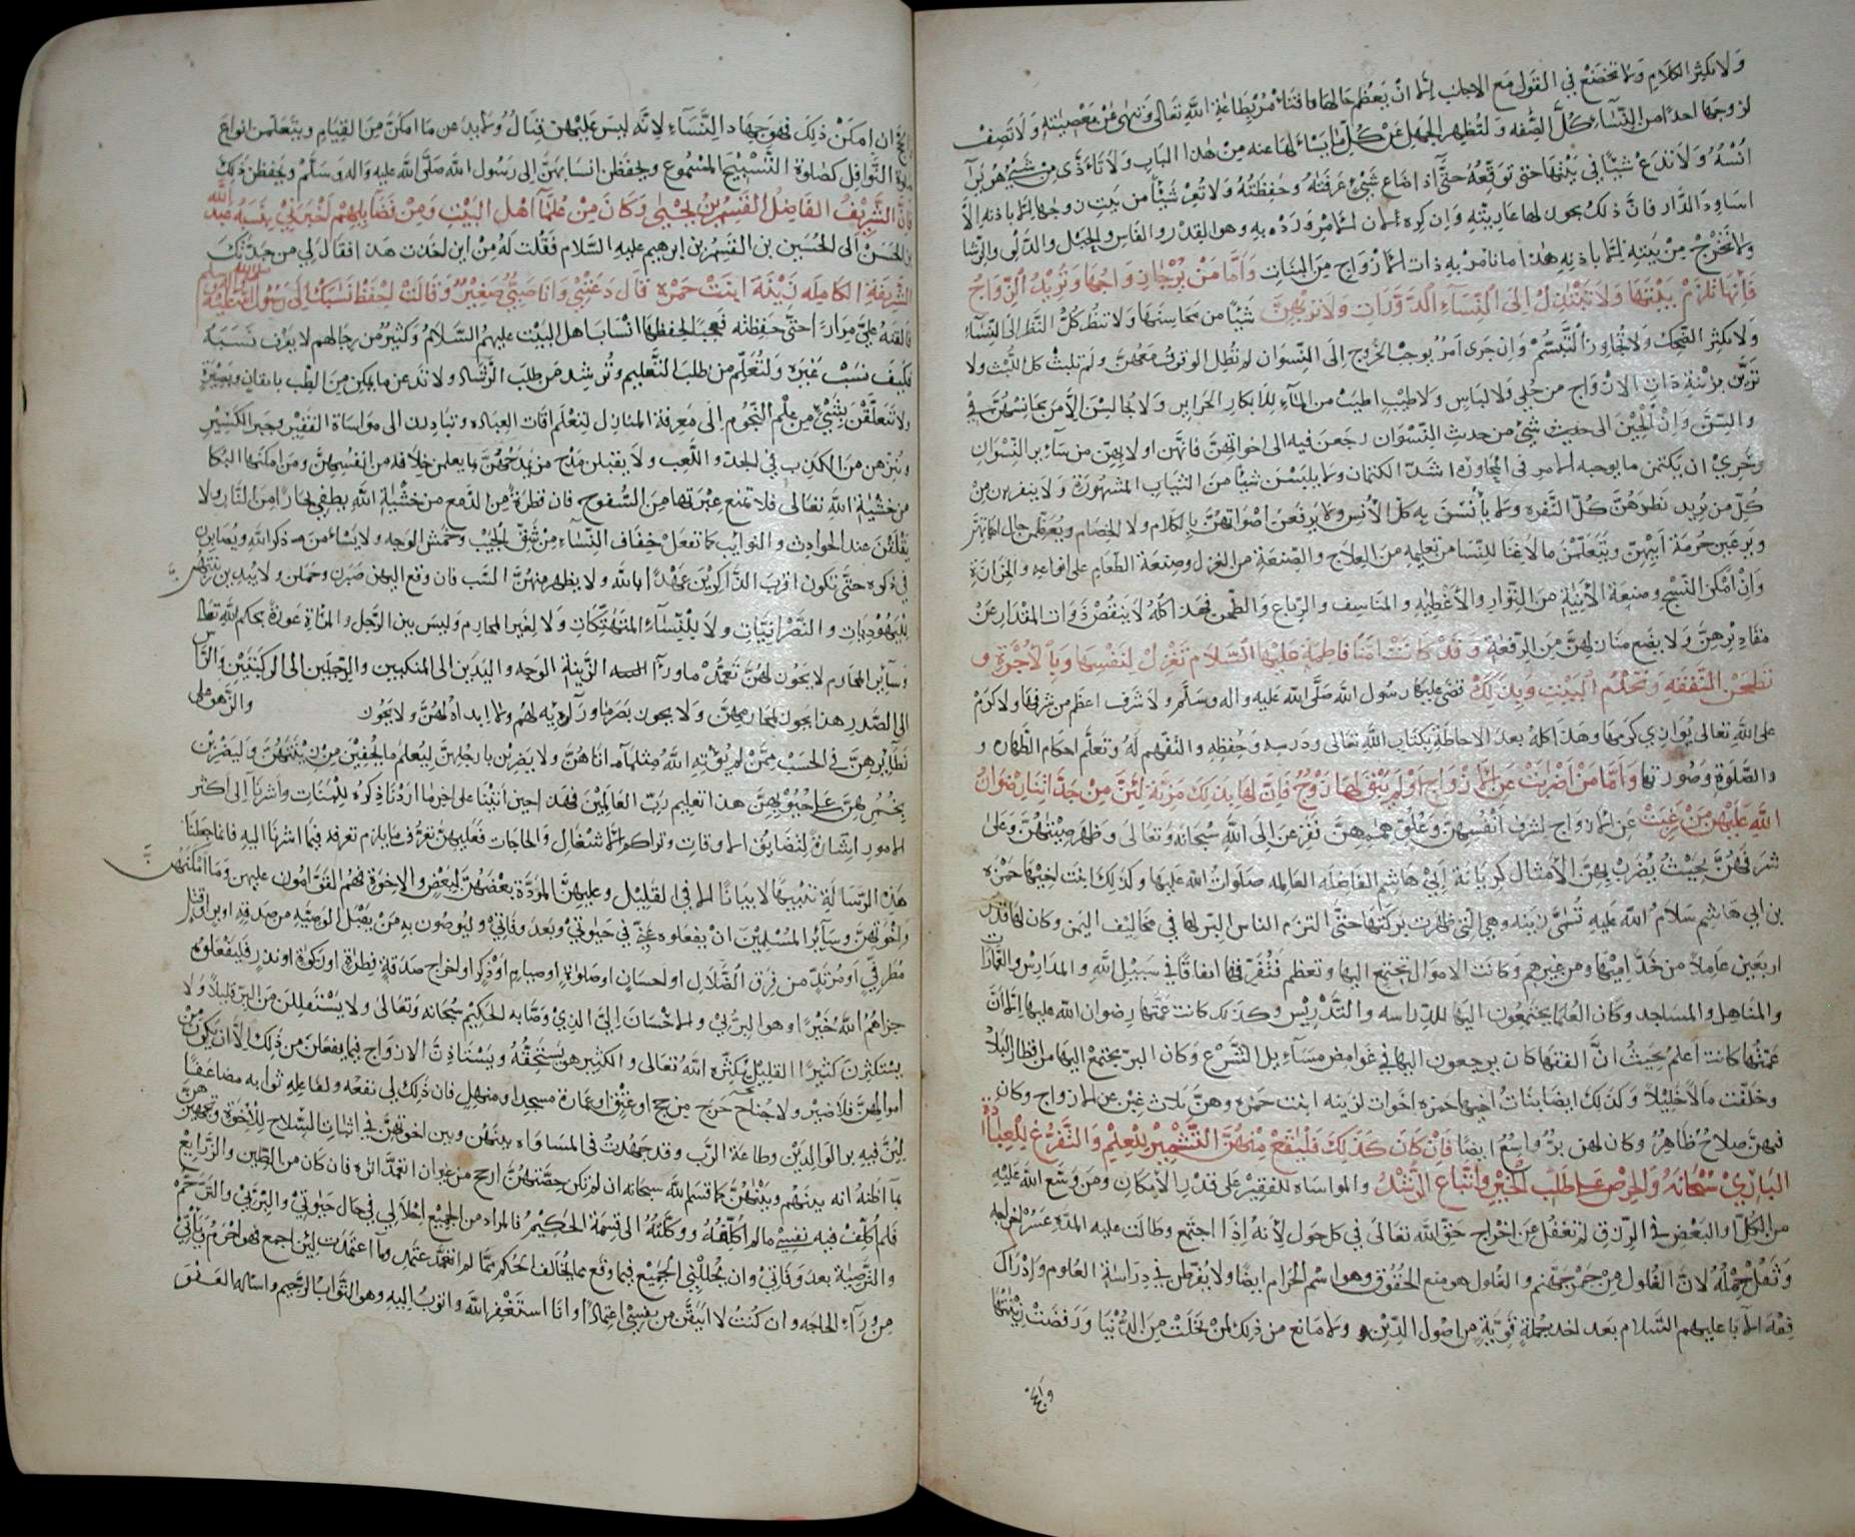 ولا تكثر الكلام ولا تخضع في القول مع الاجانب الا ان يعظم حالها فافتاء مر بطاعة الله تعالى وتنهى عن معصيته ولا تصف
لزوجها احدا من النساء كل الصفه ولتظهر الجهل عن كل ما يسائلها عنه من هذا الباب ولا تاذى من شيء هو
انسه ولا تدع شيئا في بيتها حتى توقعه حتى اذا ضاع شيء عرفته وحفظته ولا تعر شيئا من بيت زوجها الا باذنه الا
اساود الدار فان ذلك يجوز لها عاريته وان كره لان الامر ورد به وهو القدر والفاس والحبل والدلو والرشا
ولا تخرج من بيته الا باذنه هذا ما نامر به ذات الازواج من البنات واما من يرجا زواجها وتريد الزواج
فانها تلزم بيتها ولا تبتذل الى النساء الدورات ولا تريهن شيئا من محاسنها ولا تنظر كل النظر الى النساء
ولا تكثر الضحك ولا تجاوز التبسم وان جرى امر يوجب الخروج الى النسوان لم تطل الوقوف معهن ولم تلبث كل اللبث ولا
تزين بزينة ذات الازواج من حلي ولا لباس ولا طيب اطيب من الماء للابكار الحراير ولا يجالسن الا من يجانسهن في
والسن وان الجين الى حديث شيء من حديث النسوان رجعن فيه الى اخواتهن فانهن اولا بهن من سائر النسوان
وتحري ان يكتمن ما يوجبه الامر في المجاوره اشد الكتمان ولا يلبسن شيئا من الثياب المشهورة ولا ينفرن من
كل من يريد نظرهن كل النفره ولا يانسن به كل الانس ولا يرفعن اصواتهن بالكلام ولا الخصام ويعظمن حال امهاتهن
ويرعين حرمة ابيهن ويتعلمن ما لا غنا للنسا من تعليمه من العلاج والصنعة من الغزل وصنعة الطعام على انواعه والخزانة
وان امكن النسج وصنعة الابنية من النوار والاغطيه والمناسف والرباع والطحن فهذا كله لا ينقص ذوات المقدار عن
مقاديرهن ولا يضع منازلهن من الرفعة وقد كانت امنا فاطمة عليها السلام تغزل لنفسها وبالاجرة و
تطحن النفقه وتخدم البيت وبذلك قضى عليها رسول الله صلى الله عليه واله وسلم ولا شرف اعظم من شرفها ولا كرم
على الله تعالى يوازي كرمها وهذا كله بعد الاحاطة بكتاب الله تعالى ودرسه وحفظه والتفهم له وتعلم احكام الطهاره و
والصلوة وصورتها واما من اضربت عن الازواج او لم يتفق لها زوج فان لها بذلك مزية لئن من جداتنا رضوان
الله عليهن من رغبت عن الازواج لشرف انفسهن وعلو هممهن تفزعن الى الله سبحانه وتعالى وظهر صيتهن وعلى
شرفهن بحيث يضرب بهن الامثال كريانة ابي هاشم الفاضله العالمه صلوات الله عليها وكذلك ابنت اخيها حمزه
بن ابي هاشم سلام الله عليه تسمى زينه وهي التي ظهرت بركتها حتى التزم الناس البر لها في مخاليف اليمن وكان لها قدر
اربعين عاملا من خدامها ومن غيرهم وكانت الاموال تجتمع اليها وتعظم فتفرقها انفاقا في سبيل الله والمدارس والقمارات
والمناهل والمساجد وكان العلما يجتمعون اليها للدراسه والتدريس وكذلك كانت عمتها رضوان الله عليها الا ان
عمتها كانت اعلم بحيث ان الفقها كان يرجعون اليها في غوامض مسائل الشرع وكان البر يجتمع اليها من اقطار البلاد
وخلفت مالا جليلا وكذلك ايضا بنات اخيها حمزه اخوات لزينه ابنت حمزه وهن ثلاث غبن عن الازواج وكان
فيهن صلاح ظاهر وكان لهن بر واسع ايضا فان كان كذلك فليقع منهن التشمير للعلم والتفرغ للعبادة
الباري سبحانه والحرص على طلب الخير واتباع الرشد والمواساه للفقير على قدر الامكان ومن وسع الله عليه
من الكل او البعض في الرزق لم تغفل عن اخراج حق الله تعالى في كل حول لانه اذا اجتمع وطالت عليه المدة عسر اخراجه
وثقل حمله لان الغلول من جمر جهنم والغلول هو منع الحقوق وهو اسم الحرام ايضا ولا يفرطن في دراسة العلوم وادراك
فقه الابا عليهم السلام بعد اخذ جملة قوية من اصول الدين ولا مانع من ذلك لمن تخلت من الدنيا ورفضت زينتها
ان امكن ذلك فهو جهاد النساء لانه ليس عليهن قتال ولا يدعن ما امكن من القيام ويتعلمن انواع
صلوة النوافل كصلوة التسبيح المشموع ويحفظن انسابهن الى رسول الله صلى الله عليه واله وسلم ويحفظن ذلك
فان الشريف الفاضل القسم بن يحيى وكان من علماء اهل البيت ومن فضائلهم اخبرني بنسبه عبد الله
بن الحسن الى الحسين بن القسم بن ابرهيم عليه السلام فقلت له من اين اخذت هذا فقال لي من جدتك
الشريفة الكامله زينة ابنت حمزه قال دعتني وانا صبي صغير وقالت احفظ نسبك الى رسول الله صلى الله عليه وسلم
فالقته علي مرارا حتى حفظته فعجبا لحفظها انساب اهل البيت عليهم السلام وكثير من رجالهم لا يعرف نسبه
فكيف نسب غيره ولتعلم من طلب التعليم وترشد من طلب الرشاد ولا تدعن ما يمكن من الطب باتقان وبصيرة
ولا تتعلقن بشيء من علم النجوم الى معرفة المنازل لتعلم اوقات العباده وتبادرن الى مواساة الفقير وجبر الكسير
وينزهن من الكذب في الجد واللعب ولا يقبلن مدح من يمدحهن بما يعلمن خلافه من انفسهن ومن امكنها البكا
من خشية الله تعالى فلا تمنع عبرتها من السفوح فان قطرة من الدمع من خشية الله يطفي بحارا من النار ولا
يقلقن عند الحوادث والنوايب كما تفعل خفاف النساء من شق الجيب وخمش الوجه ولا ينساءن من ذكر الله ويصابرن
في ذكره حتى تكون اقرب الذاكرين عهدا بالله ولا يظهر منهن السب فان وقع اليهن صبرن وحملن ولا يبدين زينتهن
لليهوديات والنصرانيات ولا للنساء المتهتكات ولا لغير المحارم وليس بين الرجل والمراة عورة بحكم الله تعالى
وسائر المحارم لا يجوز لهن تعمد ما وراء الزينة الوجه واليدين الى المنكبين والرجلين الى الركبتين والراس
الى الصدر هذا يجوز لمحارمهن ولا يجوز بصر ما وراءه لهم ولا ابداء لهن ولا يجوز والزهو على
نظايرهن في الحسب ممن لم يؤته الله مثل ما اتاهن ولا يضربن بارجلهن ليعلم ما يخفين من زينتهن وليضربن
بخمرهن على جيوبهن هذا تعليم رب العالمين فهذا حين اتينا على اخر ما اردنا ذكره للبنات واشرنا الى اكثر
الامور اشارة لتضايق الاوقات وتراكم الاشغال والحاجات فعليهن تعرف ما يلزم تعرفه فيما اشرنا اليه فانما جعلنا
هذه الرسالة تنبيها لا بيانا الا في القليل وعليهن المودة بعضهن لبعض والاخوة فهم القوامون عليهن وما امكنهن
واخوتهن وسائر المسلمين ان يفعلوه عني في حيوتي وبعد وفاتي وليوصون به من يقبل الوصية من صدقة او براقتل
مطرفي او مرتد من فرق الضلال او احسان او صلواة او صيام او ذكر او اخراج صدقة فطرة او زكوة او نذر فليفعلوه
جزاهم الله خيرا وهو البر بي والاحسان الي الذي وصا به الحكيم سبحانه وتعالى ولا يستقللن من البر قليلا ولا
يستكثرن كثيرا القليل يكثره الله تعالى والكثير هو يستحقه ويستاذن الازواج فيما يفعلن من ذلك الا ان يكون من
اموالهن فلا ضير ولا جناح حرج من حج او عتق او عمارة مسجد او منهل فان ذلك لي نفعه ولفاعله ثوابه مضاعفا
لبرهن فيه بر الوالدين وطاعة الرب وقد جهدت في المساواه بينهن وبين اخوتهن في اثمان السلاح للاخوة وتجهيزهن
بما اظنه انه بينهم وبينهن كما قسم الله سبحانه ان لم تكن حصتهن ارجح من غير ان اتعمد اثره فان كان من الطين والزرايع
فلم اكلف فيه نفسي ما لم اكلفه ووكلته الى قسمة الحكيم فالمراد من الجميع احلالي في حال حيوتي والبر بي والترحم
والترضية بعد وفاتي وان يحللني الجميع فيما وقع مما يخالف الحكم مما لم اتعمد عنه وما اعتمدت
من وراء الحاجه وان كنت لا ابيقن من نفسي اعتمادا وانا استغفر الله واتوب اليه وهو التواب الرحيم واساله العفو